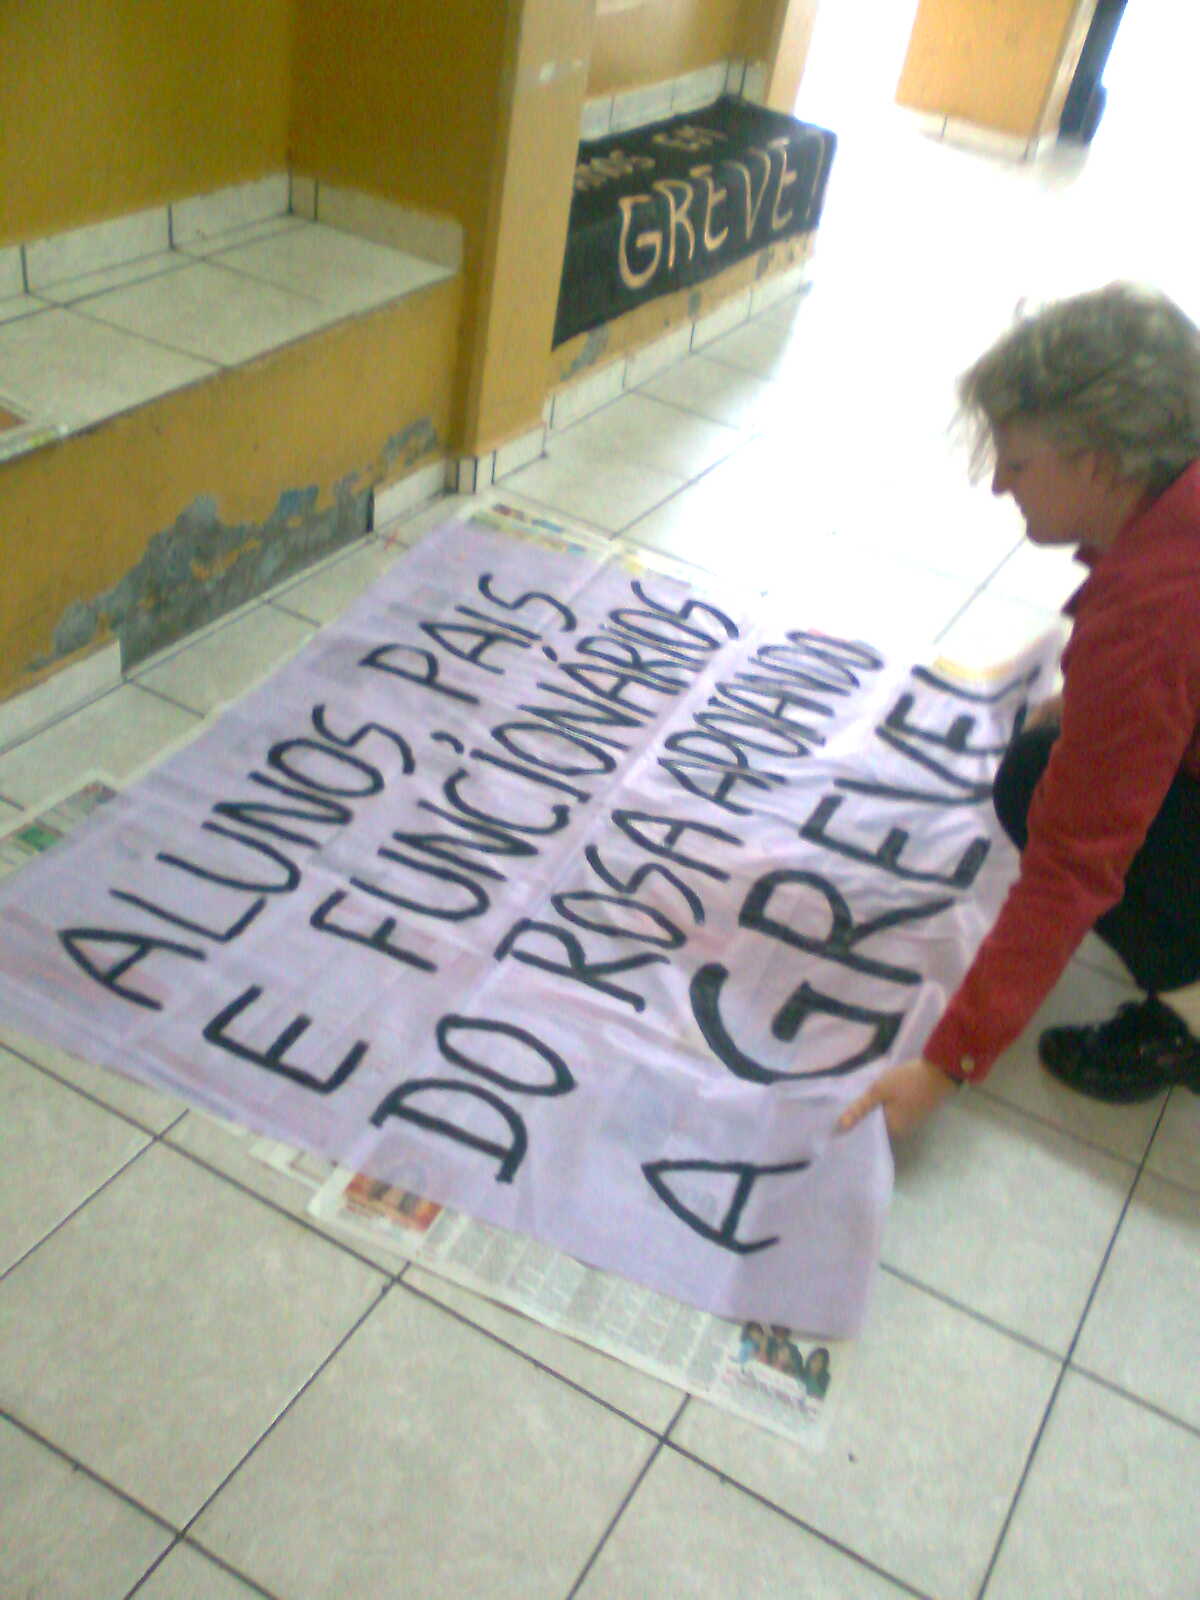 EM
GREVE!
ALUNOS PAIS
E FUNCIONÁRIOS
DO ROSA APOIANDO
A GREVE